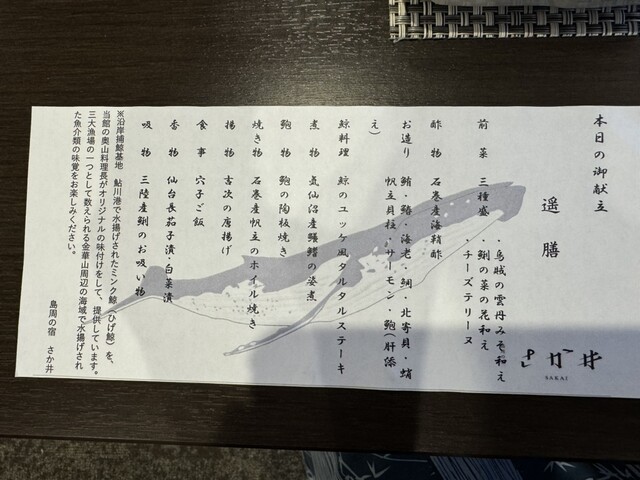 本日の御献立
遥膳
さか井
SAKAI
前菜 三種盛 ・烏賊の雲丹みそ和え
・鮂の菜の花和え
・チーズテリーヌ
酢物 石巻産海鞘酢
お造り 鮪・鱠・海老・鯛・北寄貝・蛸
帆立貝柱・サーモン・鮑(肝添
え)
鯨料理 鯨のユッケ風タルタルステーキ
煮物 気仙沼産鱶鰭の姿煮
鮑物 鮑の陶板焼き
焼き物 石巻産帆立のホイル焼き
揚物 吉次の唐揚げ
食事 穴子ご飯
香物 仙台長茄子漬・白菜漬
吸物 三陸産鮂のお吸い物
※沿岸捕鯨基地 鮎川港で水揚げされたミンク鯨(ひげ鯨)を、
当館の奥山料理長がオリジナルの味付けをして、提供しています。
三大漁場の一つとして数えられる金華山周辺の海域で水揚げされ
た魚介類の味覚をお楽しみください。
島周の宿 さか井